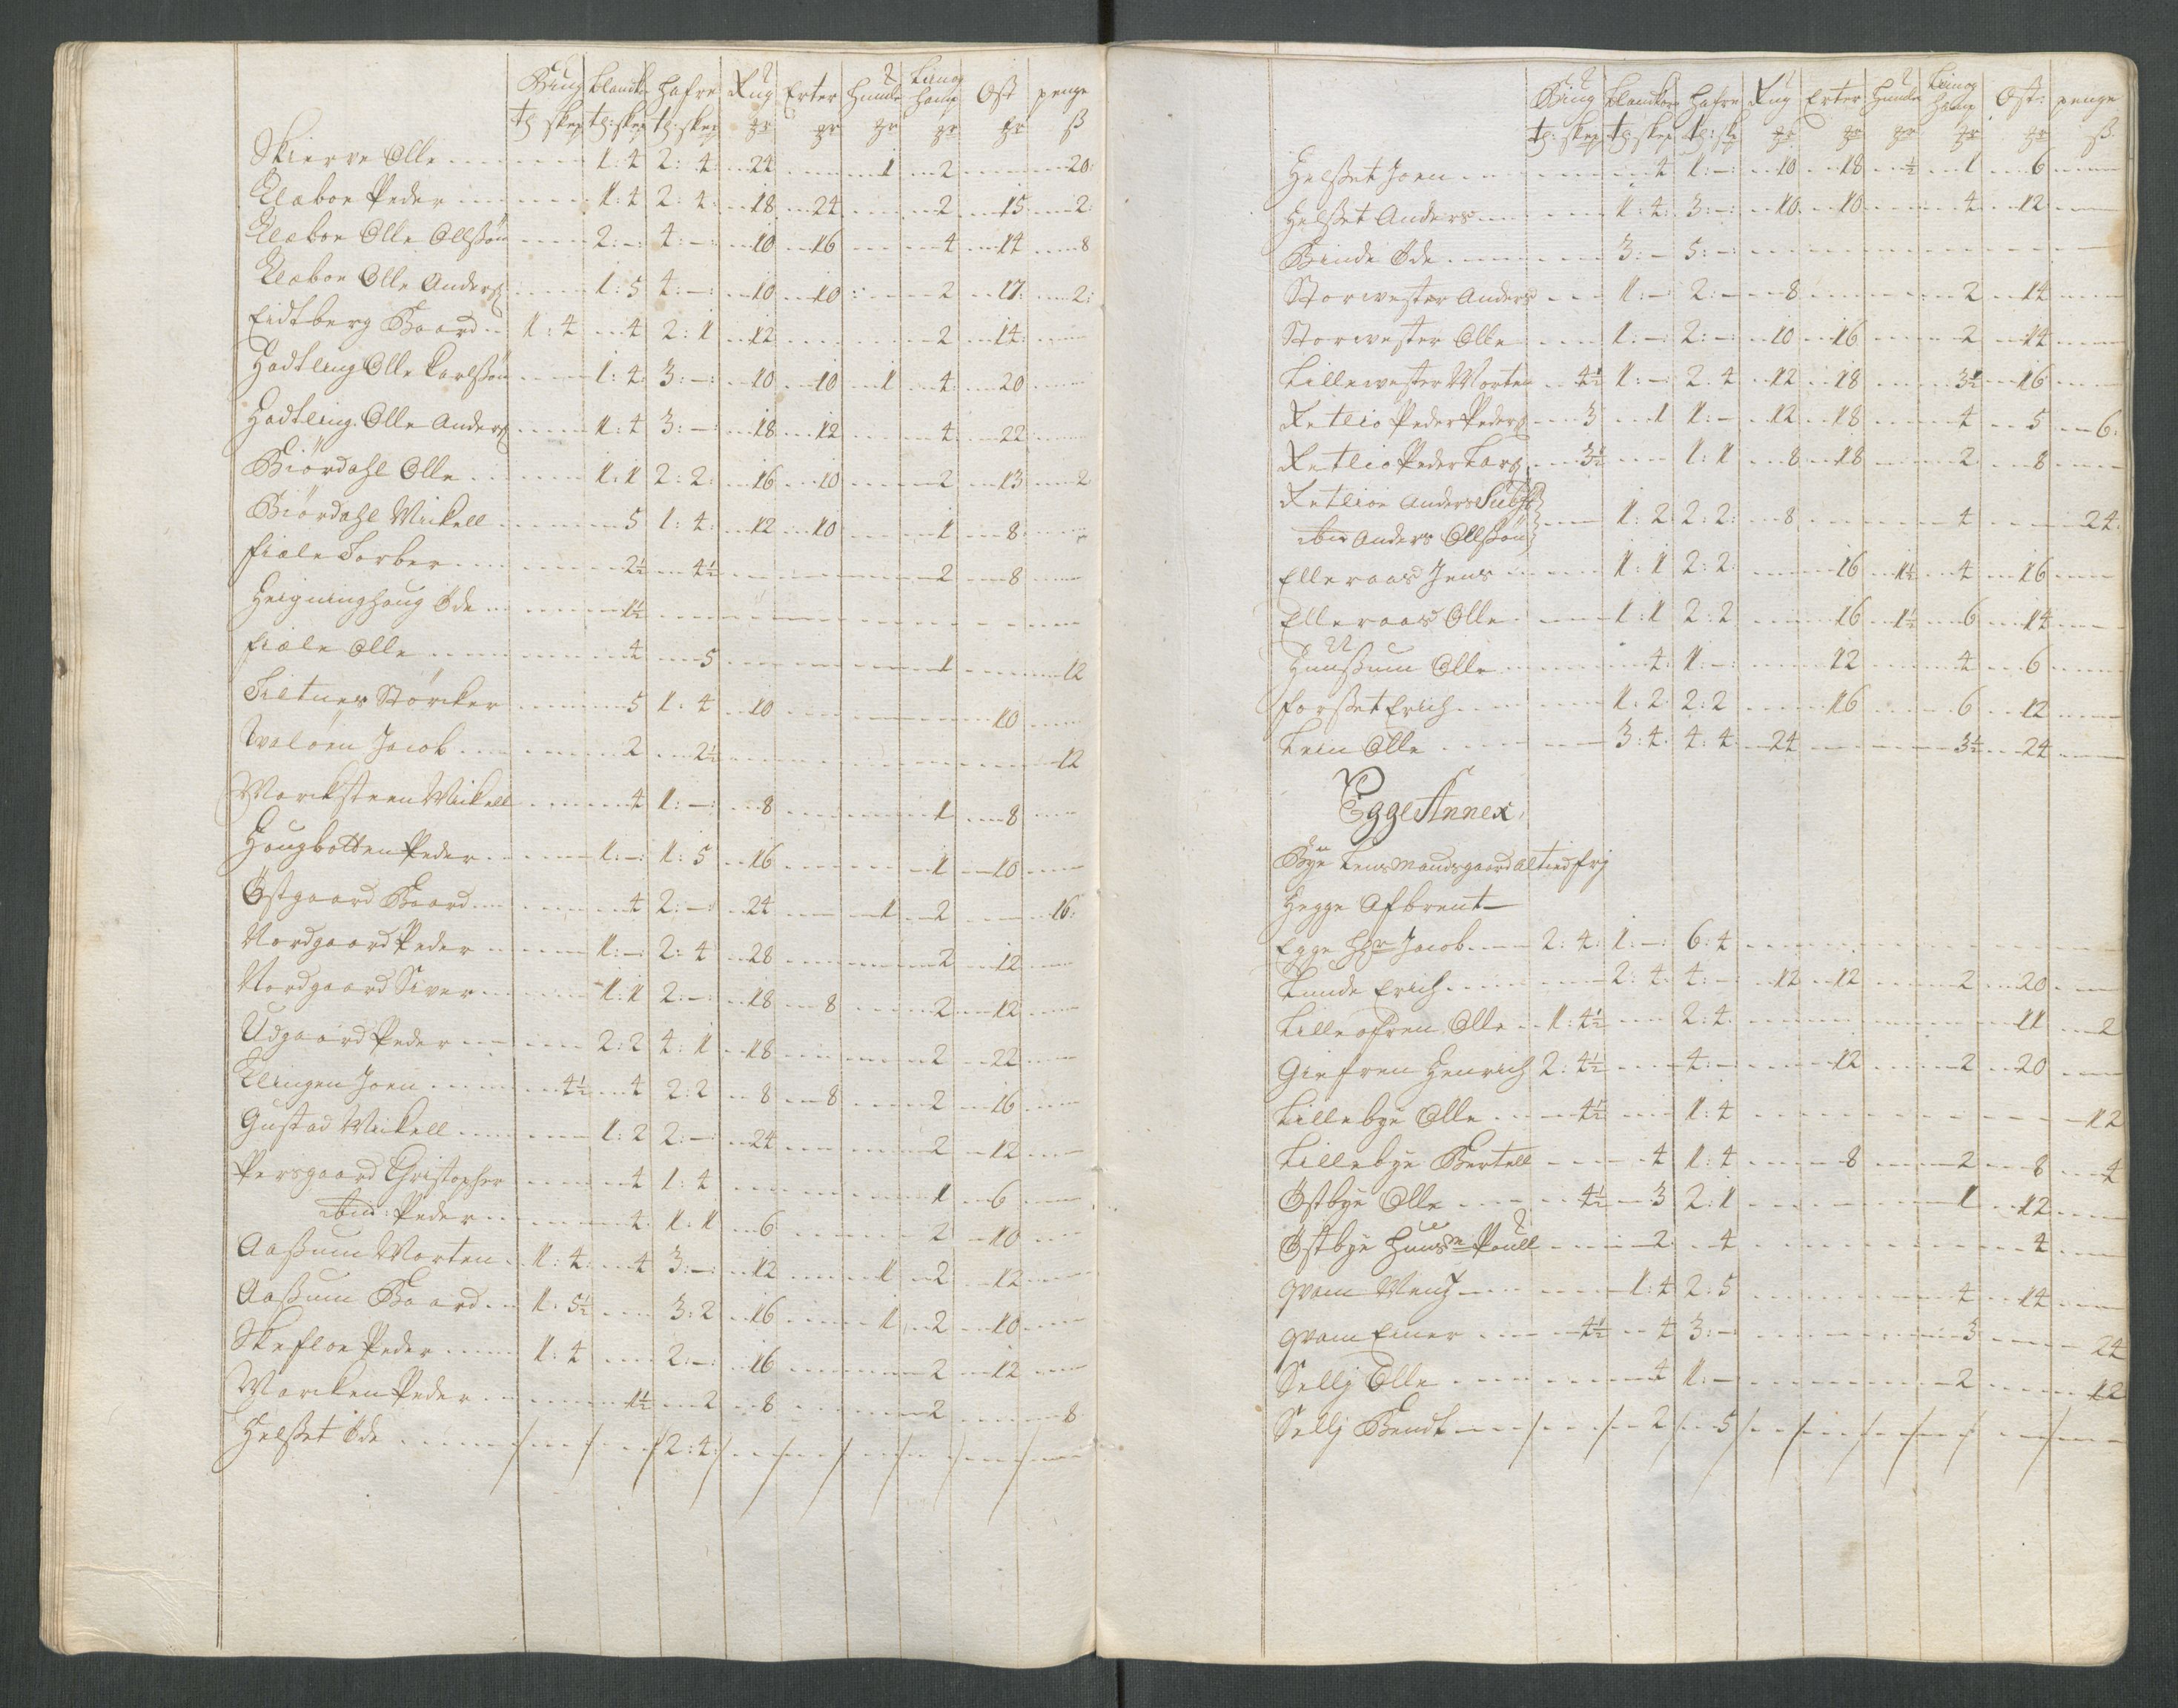 Biug blandk: Hafre Rug Erter Humle Lin og hamp Ost penge
tl: skep tl: skep tl: skep ß
Skierve Olle 1:4 2:4 24 1 2 20
Klæboe Peder 1:4 2:4 18 24 2 15 2
Klæboe Olle Ollssøn 2:- 4:- 10 16 4 14 8
Klæboe Olle Anders 1:5 4:- 10 10 2 17 2
Eidtberg Baard 1:4 4 2:1 12 2 14
Hadtling Olle Carlssøn 1:4 3:- 10 10 1 4 20
Hadtling Olle Anders 1:4 3:- 18 12 4 22
Biørdahl Olle 1:1 2:2 16 10 2 13 2
Biørdahl Mickell 5 1:4 12 10 1 8
Fiæle Torber 2½ 4½ 2 8
Heigninghaug Øde 1½
Fiæle Olle 4 5 1 12
Tiltnes Størcker 5 1:4 10 10
Svaløen Jacob 2 2½ 12
Marcksteen Mickell 4 1:- 8 1 8
Hougbotten Peder 1:- 1:5 16 1 10
Østgaard Baard 4 2:- 24 1 2 16
Nordgaard Peder 1:- 2:4 28 2 12
Nordgaard Siver 1:1 2:- 18 8 2 12
Udgaard Peder 2:2 4:1 18 2 22
Klingen Joen 4½ 4 2:2 8 8 2 16
Gustad Mickell 1:2 2:- 24 2 12
Persgaard Christopher 4 1:4 1 6
ibid: Peder 4 1:1 6 2 10
Aassum Morten 1:4 4 3:- 12 1 2 12
Aassum Baard 1:5½ 3:2 16 1 2 10
Skefloe Peder 1:4 2:- 16 2 12
Marcken Peder 1½ 2 8 2 8
Helsset Øde 2:4
Biug blandkorn Hafre Rug Erter Humle Lein og Hamp Ost: penge
tl: skep tl: skep tl: sk ß
Helsset Joen 4 1:- 10 18 ½ 1 6
Helsset Anders 1:4 3:- 10 10 4 12
Binde Øde 3:- 5:-
Storvester Anders 1:- 2:- 8 2 14
Storvester Olle 1:- 2:- 10 16 2 14
Lillevester Morten 4½ 1:- 2:4 12 18 3½ 16
Retlio Peder Peders 3 1 1:- 12 18 4 5 6
Retlio Peder Lars 3½ 1:1 8 18 2 8
Retlioe Anders
ibid Anders Ollssøn 1:2 2:2 8 4 24
Elleraas Jens 1:1 2:2 16 1½ 4 16
Elleraas Olle 1:1 2:2 16 1½ 6 14
Hunssum Olle 4 1:- 12 4 6
Forsset Erich 1:2 2:2 16 6 12
Lein Olle 3:4 4:4 24 3½ 24
Egge Annex
Bye Lensmandsgaard altied frj
Hegge Afbrent
Egge Hr Jacob 2:4 1:- 6:4
Lunde Erich 2:4 4:- 12 12 2 20
Lille ofren Olle 1:4½ 2:4 11 2
Giefren Henrich 2:4½ 4:- 12 2 20
Lillebye Olle 4½ 1:4 12
Lillebye Bertell 4 1:4 8 2 8 4
Østbye Olle 4½ 3 2:1 1 12
Østbye Huusm Poull 2 4 4
Qvam 1:4 2:5 4 14
Qvam Einer 4½ 4 3:- 3 24
Sellj Olle 4 1:- 2 12
Sellj Bendt 2 5